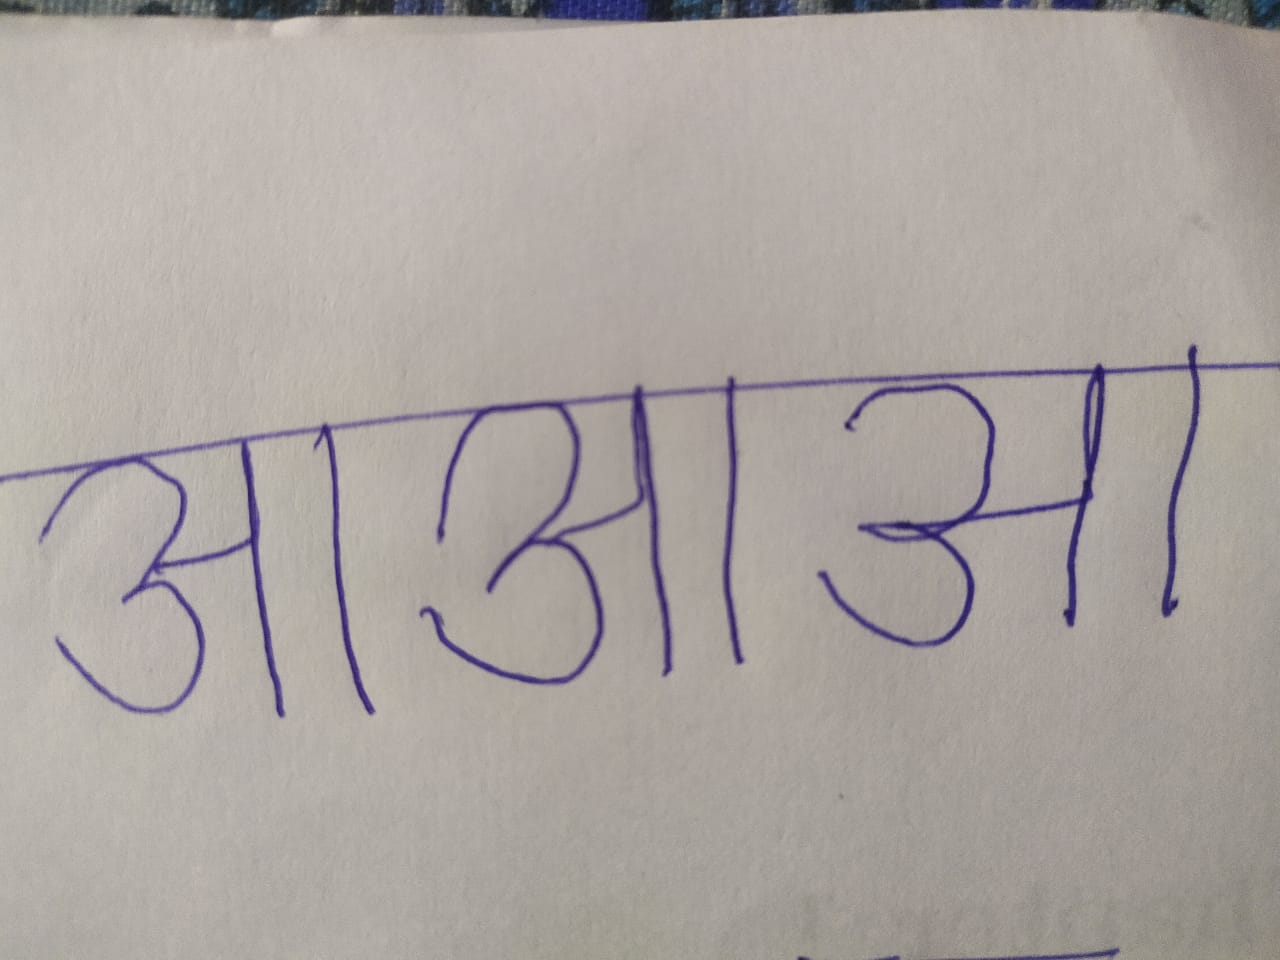 आआआ